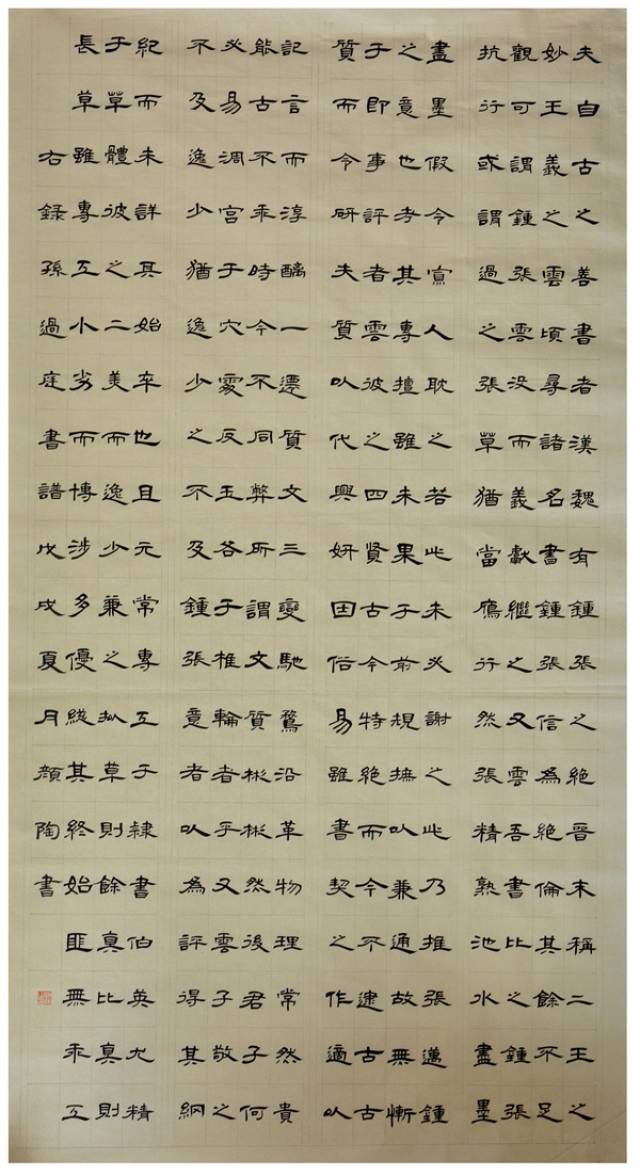 夫自古之善書者漢魏有鍾張之絕晉末稱二王之
妙王羲之雲頃尋諸名書鍾張信為絕倫其餘不足
觀可謂鍾張雲沒而羲獻繼之又雲吾書比之鍾張
抗行或謂過之張草猶當鴈行然張精熟池水盡墨
盡墨假令寡人耽之若此未必謝之此乃推張邁鍾
之意也考其專擅雖未果于前規摭以兼通故無慚
于即事評者雲彼之四賢古今特絕而今不逮古古
質而今研夫質以代興妍因俗易雖書契之作適以
記言而淳醨一遷質文三變馳騖沿革物理常然貴
能古不乖時今不同弊所謂文質彬彬然後君子何
必易凋宮于穴愛反玉谷于椎輪者乎又雲子敬之
不及逸少猶逸少之不及鍾張意者以為評得其綱
紀而未詳其始卒也且元常專工于隸書伯英尤精
于草體彼之二美而逸少兼之拟草則餘真比真則
長草雖專工小劣而博涉多優緫其終始匪無乖互
右錄孫過庭書譜戊戌夏月顏陶書